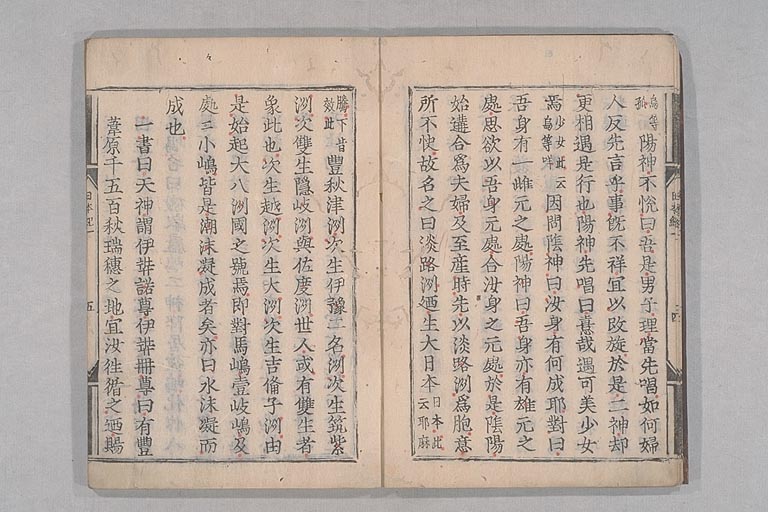 烏等孤
陽神不悦曰吾是男子理當先唱如何婦
人反先言乎事既不祥宜以改旋於是二神却
更相遇是行也陽神先唱曰憙哉遇可美少女
焉少女此云烏等咩因問陰神曰汝身有何成耶對曰
吾身有一雌元之處陽神曰吾身亦有雄元之
處思欲以吾身元處合汝身之元處於是陰陽
始遘合爲夫婦及至産時先以淡路洲爲胞意
所不快故名之曰淡路洲廼生大日本日本此云耶麻
騰下皆效此豐秋津洲次生伊豫二名洲次生筑紫
洲次雙生隱岐洲與佐度洲世人或有雙生者
象此也次生越洲次生大洲次生吉備子洲由
是始起大八洲國之號焉即對馬嶋壹岐嶋及
處〻小嶋皆是潮沫凝成者矣亦曰水沫凝而
成也
一書曰天神謂伊弉諾尊伊弉冊尊曰有豐
葦原千五百秋瑞穗之地宜汝往循之廼賜
日本紀一
四
日本紀一
五